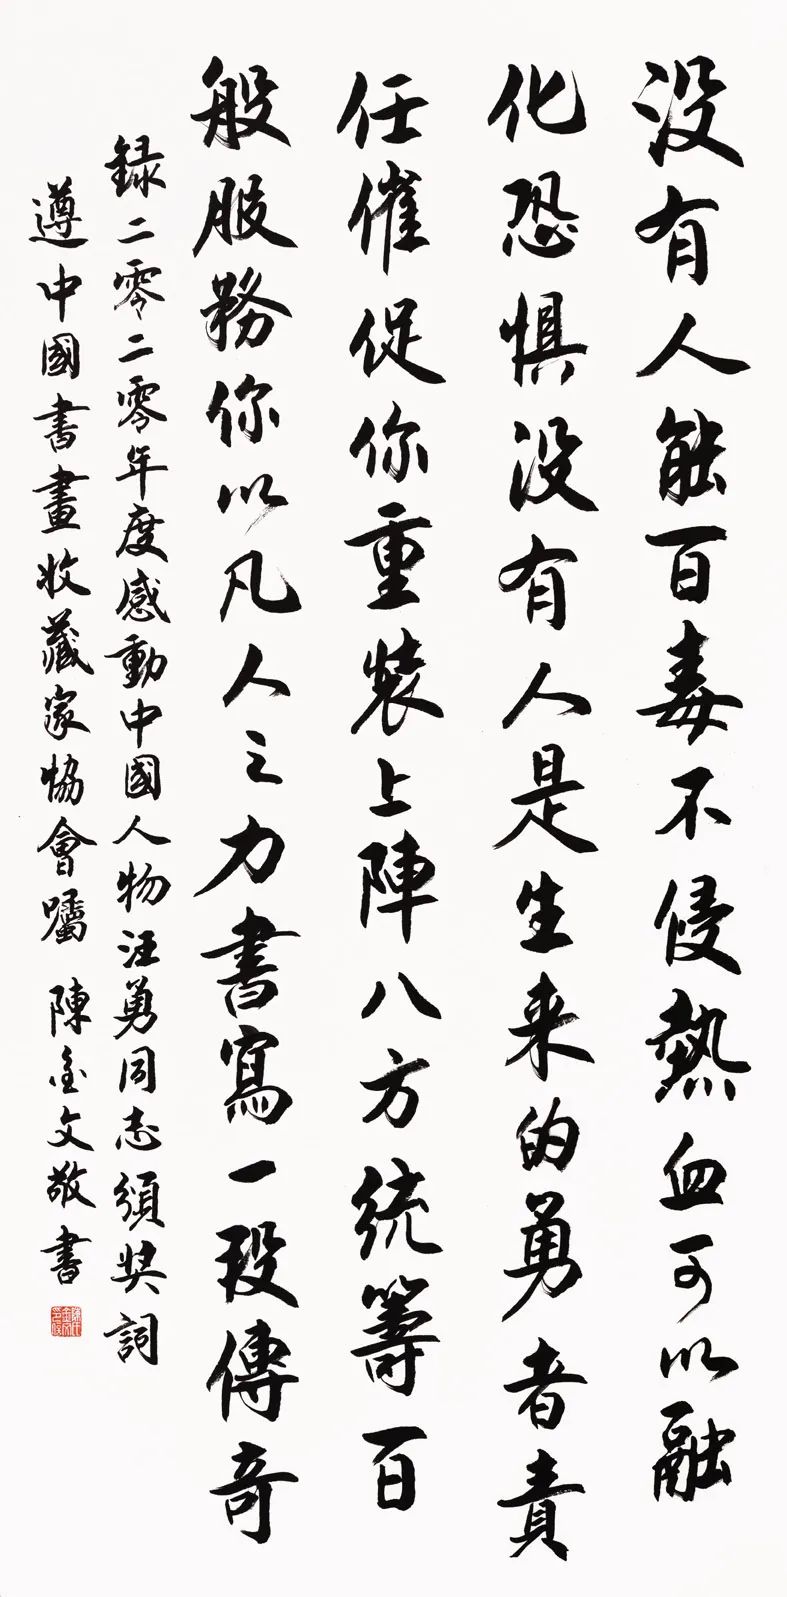 没有人能百毒不侵熱血可以融
化恐惧没有人是生来的勇者責
任催促你重裝上陣八方統籌百
般服務你以凡人之力書寫一段傳奇
録二零二零年度感動中國人物汪勇同志頒奖詞
遵中國書畫收藏家協會囑 陳金文敬書